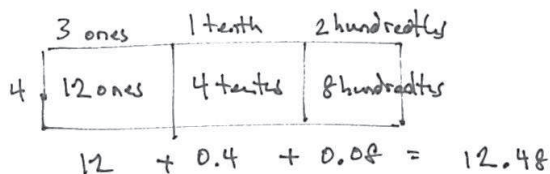 3 ones 1 tenth 2 hundredths
4 12 ones 4 tenths 8 hundredths
12 + 0.4 + 0.08 = 12.48